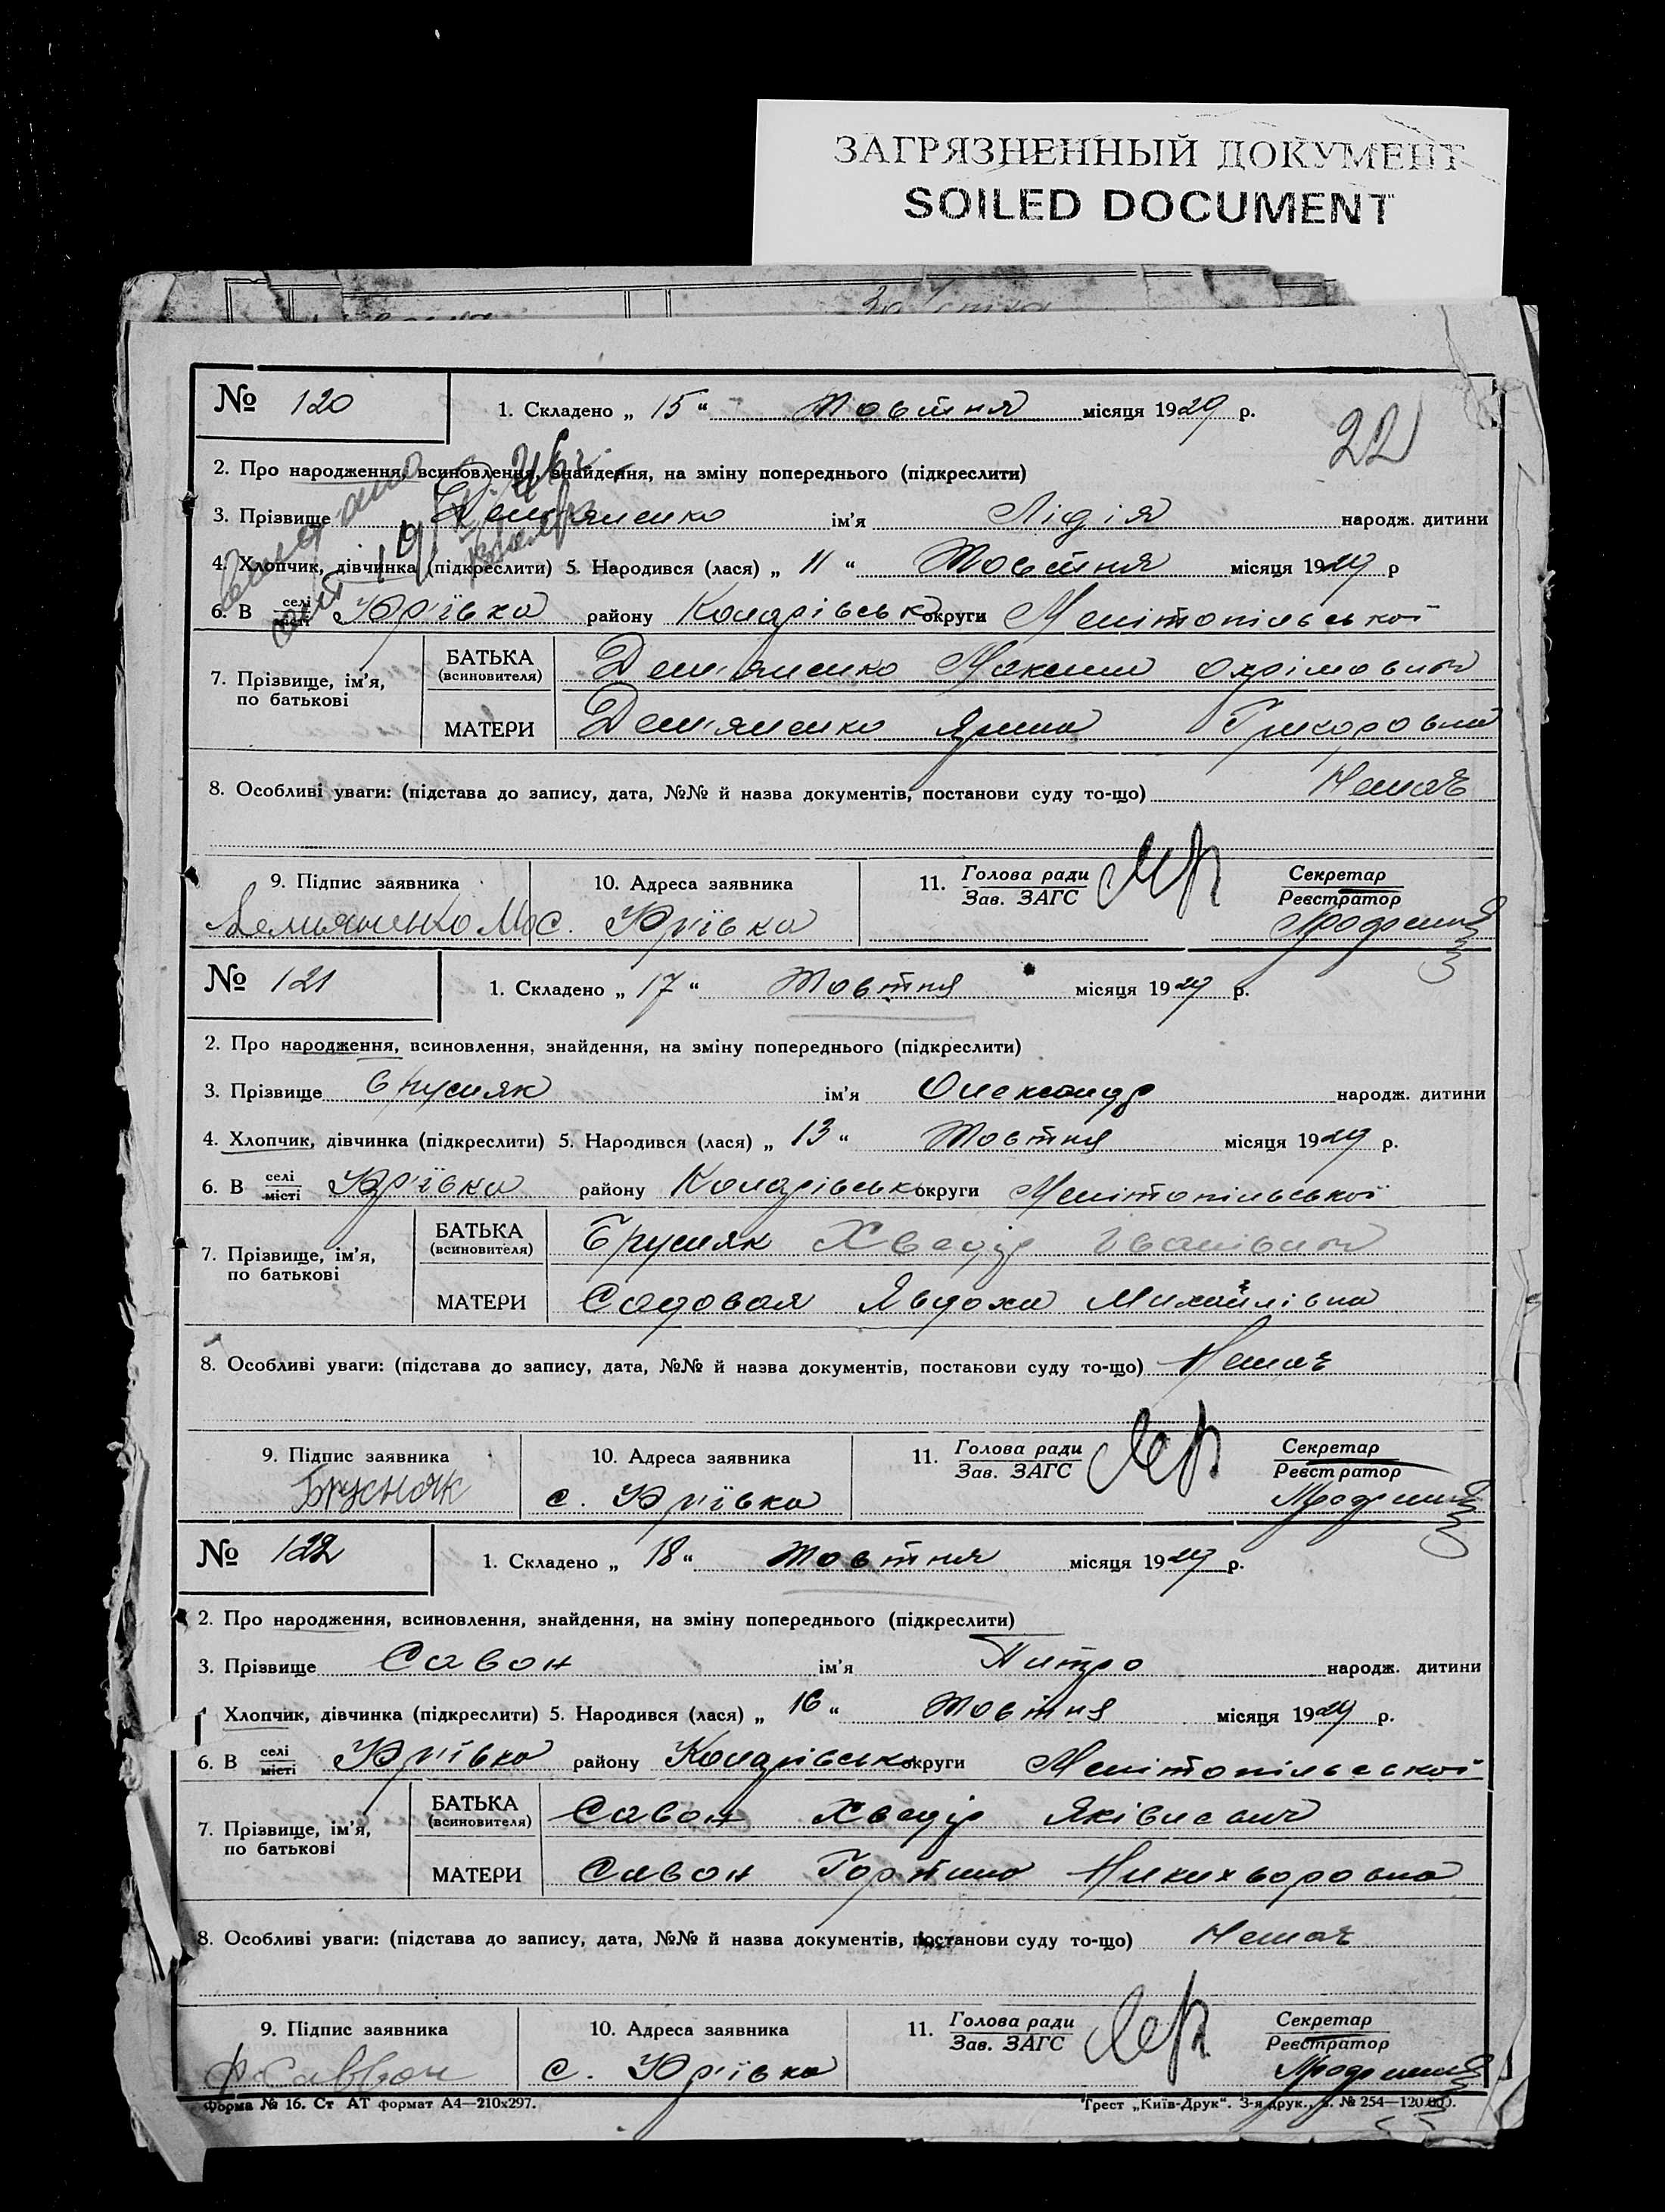 ЗАГРЯЗНЕННЫЙ ДОКУМЕНТ
SOILED DOCUMENT
22
№ 120
1. Складено „ 15 “ Жовтня місяця 1929 р.
2. Про народження, всиновлення, знайдення, на зміну попереднього (підкреслити)
3. Прізвище Дем'яненко ім'я Лідія народж. дитини
4. Хлопчик, дівчинка (підкреслити) 5. Народився (лася) „ 11 “ Жовтня місяця 1929 р
6. В селі місті Юр'ївка району Коларівськ округи Мелітопільської
7. Прізвище, ім'я, по батькові
БАТЬКА (всиновителя) Дем'яненко Максим Охрімович
МАТЕРИ Дем'яненко Ярина Григоровна
8. Особливі уваги: (підстава до запису, дата, №№ й назва документів, постанови суду то-що) Немає
9. Підпис заявника 10. Адреса заявника 11. Голова ради Зав. ЗАГС Секретар Реєстратор
Демьяненко М с. Юр'ївка
№ 121
1. Складено „ 17 “ Жовтня місяця 1929 р.
2. Про народження, всиновлення, знайдення, на зміну попереднього (підкреслити)
3. Прізвище Брусняк ім'я Олександр народж. дитини
4. Хлопчик, дівчинка (підкреслити) 5. Народився (лася) „ 13 “ Жовтня місяця 1929 р.
6. В селі місті Юр'ївка району Коларівськ округи Мелітопільської
7. Прізвище, ім'я, по батькові
БАТЬКА (всиновителя) Брусняк Хведір Іванівич
МАТЕРИ Садовая Явдоха Михайлівна
8. Особливі уваги: (підстава до запису, дата, №№ й назва документів, постанови суду то-що) Немає
9. Підпис заявника 10. Адреса заявника 11. Голова ради Зав. ЗАГС Секретар Реєстратор
Брусняк с. Юр'ївка
№ 122
1. Складено „ 18 “ Жовтня місяця 1929 р.
2. Про народження, всиновлення, знайдення, на зміну попереднього (підкреслити)
3. Прізвище Савон ім'я Питро народж. дитини
Хлопчик, дівчинка (підкреслити) 5. Народився (лася) „ 16 “ Жовтня місяця 1929 р.
6. В селі місті Юр'ївка району Коларівськ округи Мелітопільської
7. Прізвище, ім'я, по батькові
БАТЬКА (всиновителя) Савон Хведір Яківлевич
МАТЕРИ Савон Горпина Никихворовна
8. Особливі уваги: (підстава до запису, дата, №№ й назва документів, постанови суду то-що) Немає
9. Підпис заявника 10. Адреса заявника 11. Голова ради Зав. ЗАГС Секретар Реєстратор
Саввон с. Юр'ївка
Форма № 16. Ст АТ формат А4—210х297. Трест „Київ-Друк“. 3-я друк., з. № 254—120.000.